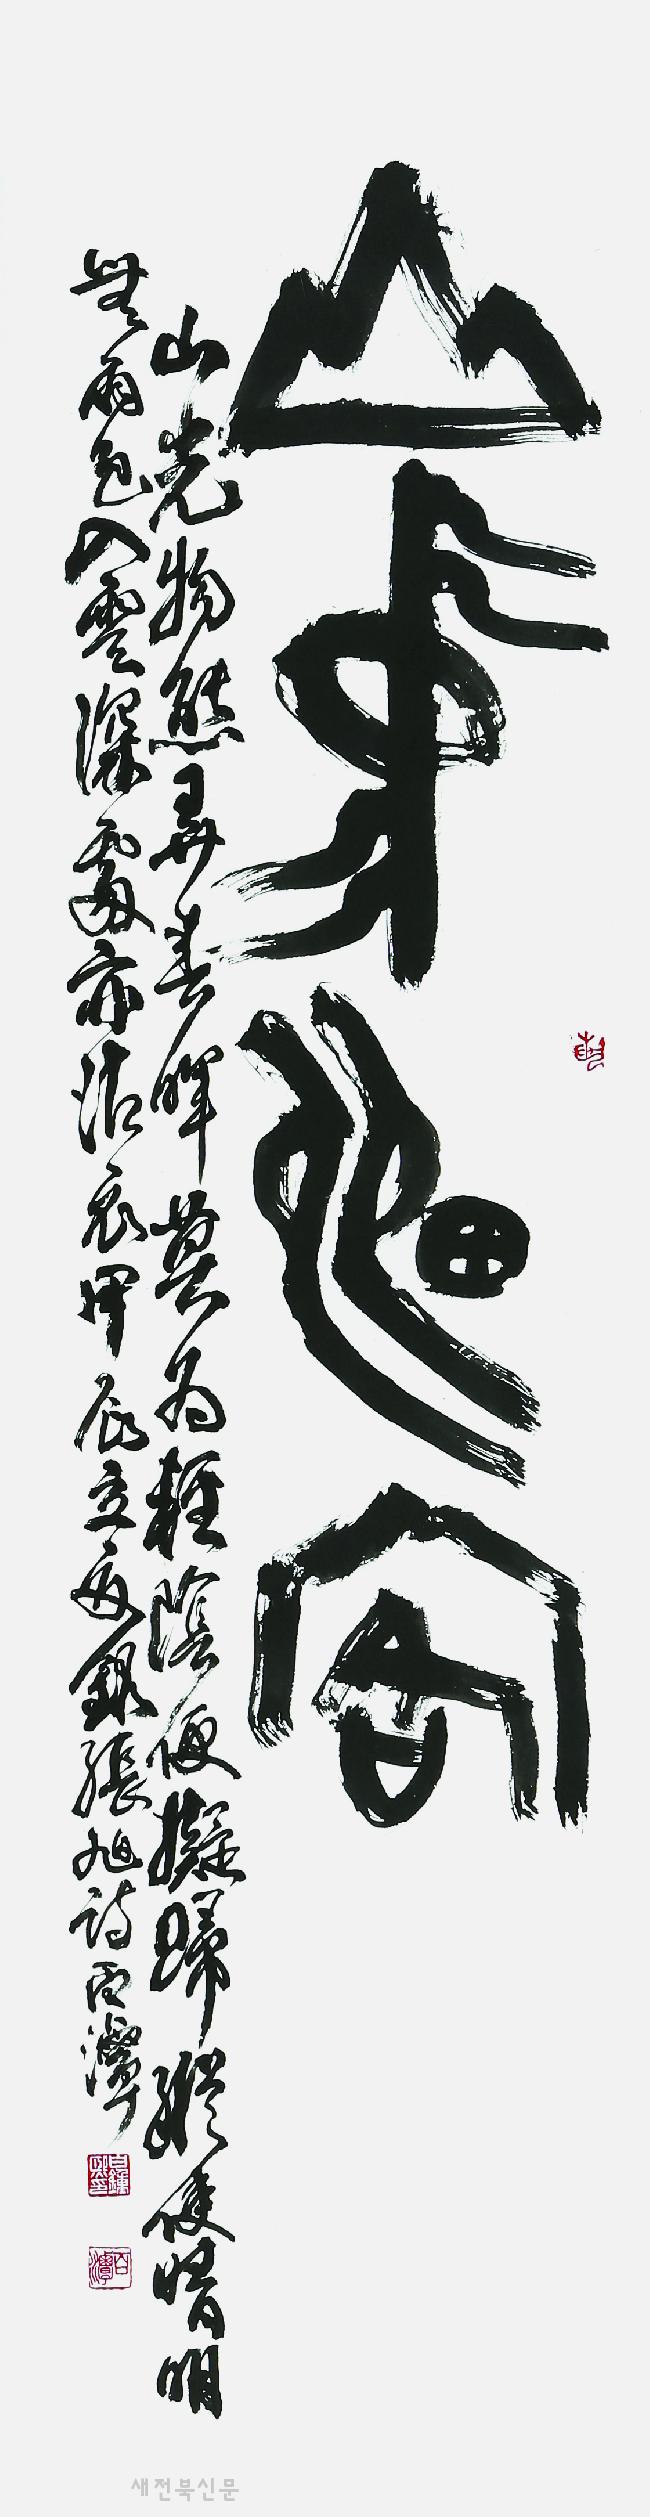 山中留客
山光物態弄春暉莫為輕陰便擬歸縱使晴明
無雨色入雲深處亦沾衣甲辰立夏錄張旭詩百潭
百潭
새전북신문